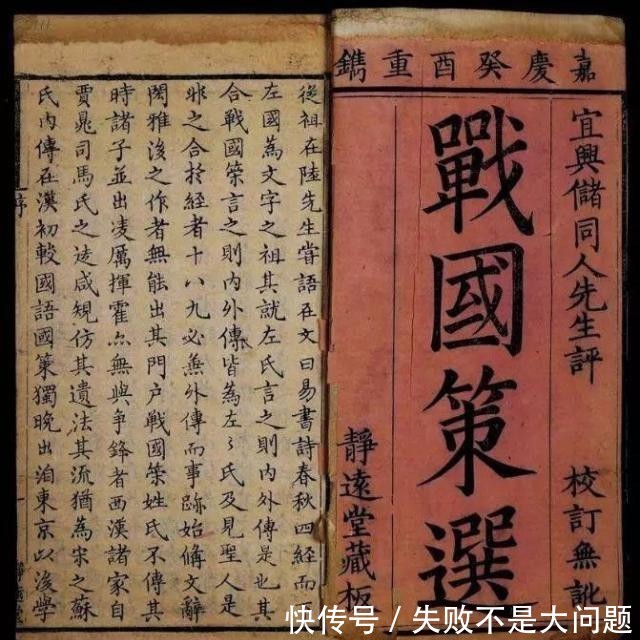 嘉慶癸酉重鐫
宜興儲同人先生評
校訂無訛
戰國策選
靜遠堂藏板
從祖在陸先生嘗語在文曰易書詩春秋四經而
左國為文字之祖其就左氏言之則內外傳是也其
合戰國策言之則內外傳皆為左〻氏及見聖人是
非之合於經者十八九必無外傳而事跡始備文辭
閎雅後之作者無能出其門户戰國策姓氏不傳其
時諸子並出凌厲揮霍尒無與爭鋒者西漢諸家自
賈晁司馬氏之徒咸規仿其遺法其流猶為宋之蘇
氏內傳在漢初較國語國策獨晚出洎東京以後學
序
快传号 / 失败不是大问题